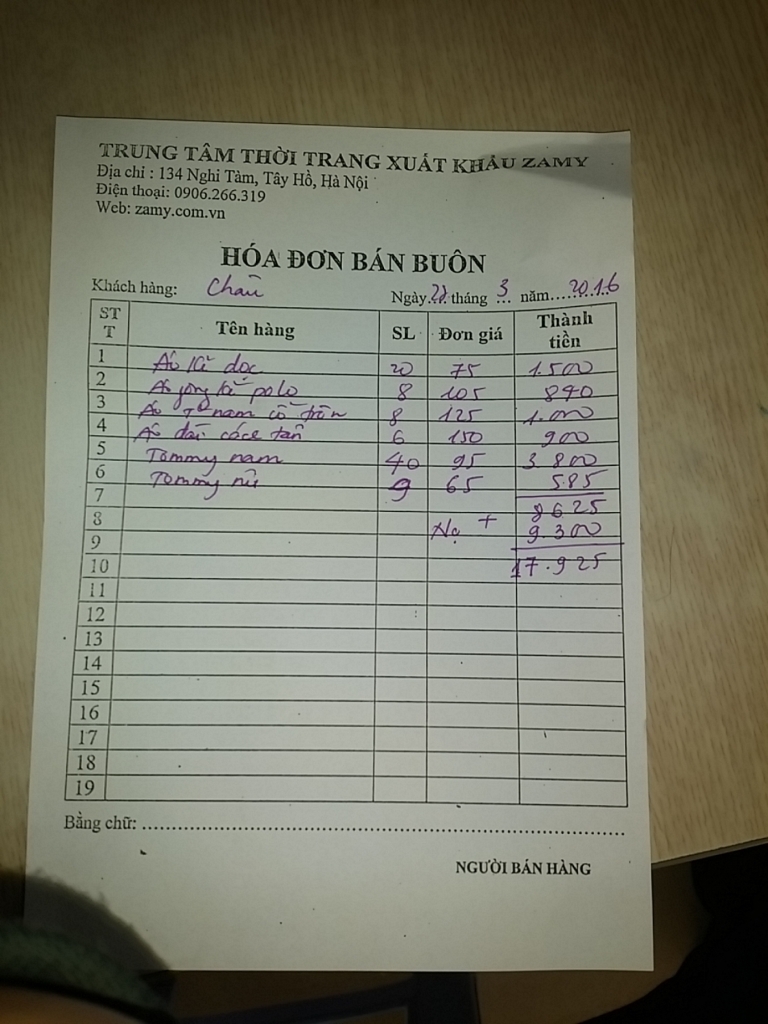 TRUNG TÂM THỜI TRANG XUẤT KHẨU ZAMY
Địa chỉ : 134 Nghi Tàm, Tây Hồ, Hà Nội
Điện thoại: 0906.266.319
Web: zamy.com.vn
HÓA ĐƠN BÁN BUÔN
Khách hàng: Ngày tháng 3 năm 2016
STT Tên hàng SL Đơn giá Thành tiền
1 Áo kẻ dọc 20 75 1.500
2 Áo kẻ polo 8 105 840
3 Áo nam cổ tròn 8 125 1.000
4 Áo dài cách tân 6 150 900
5 Tommy nam 40 95 3.800
6 Tommy nữ 9 65 585
7 8625
8 Nợ + 9.300
9
10 17.925
11
12
13
14
15
16
17
18
19
Bằng chữ:
NGƯỜI BÁN HÀNG